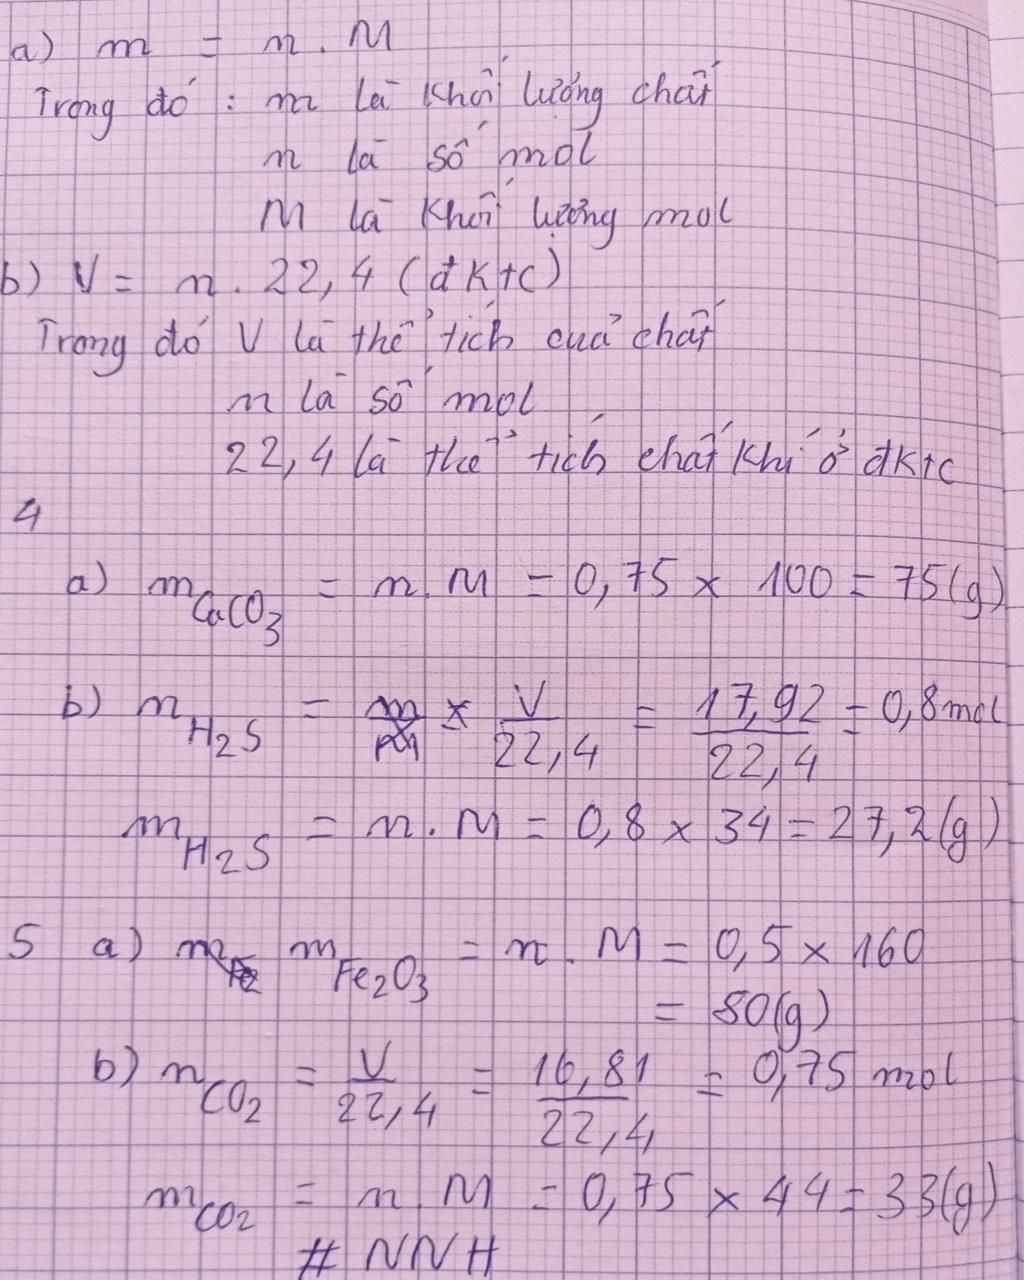 a) m = n . M
Trong đó : m là khối lượng chất
n là số mol
M là khối lượng mol
b) V = n . 22,4 (đktc)
Trong đó V là thể tích của chất
n là số mol
22,4 là thể tích chất khí ở đktc
4
a) mCaCO3 = n.M = 0,75 x 100 = 75(g)
b) nH2S = V/22,4 = 17,92/22,4 = 0,8 mol
mH2S = n.M = 0,8 x 34 = 27,2(g)
5 a) mFe2O3 = n . M = 0,5 x 160
= 80(g)
b) nCO2 = V/22,4 = 16,81/22,4 = 0,75 mol
mCO2 = n.M = 0,75 x 44 = 33(g)
# NNH